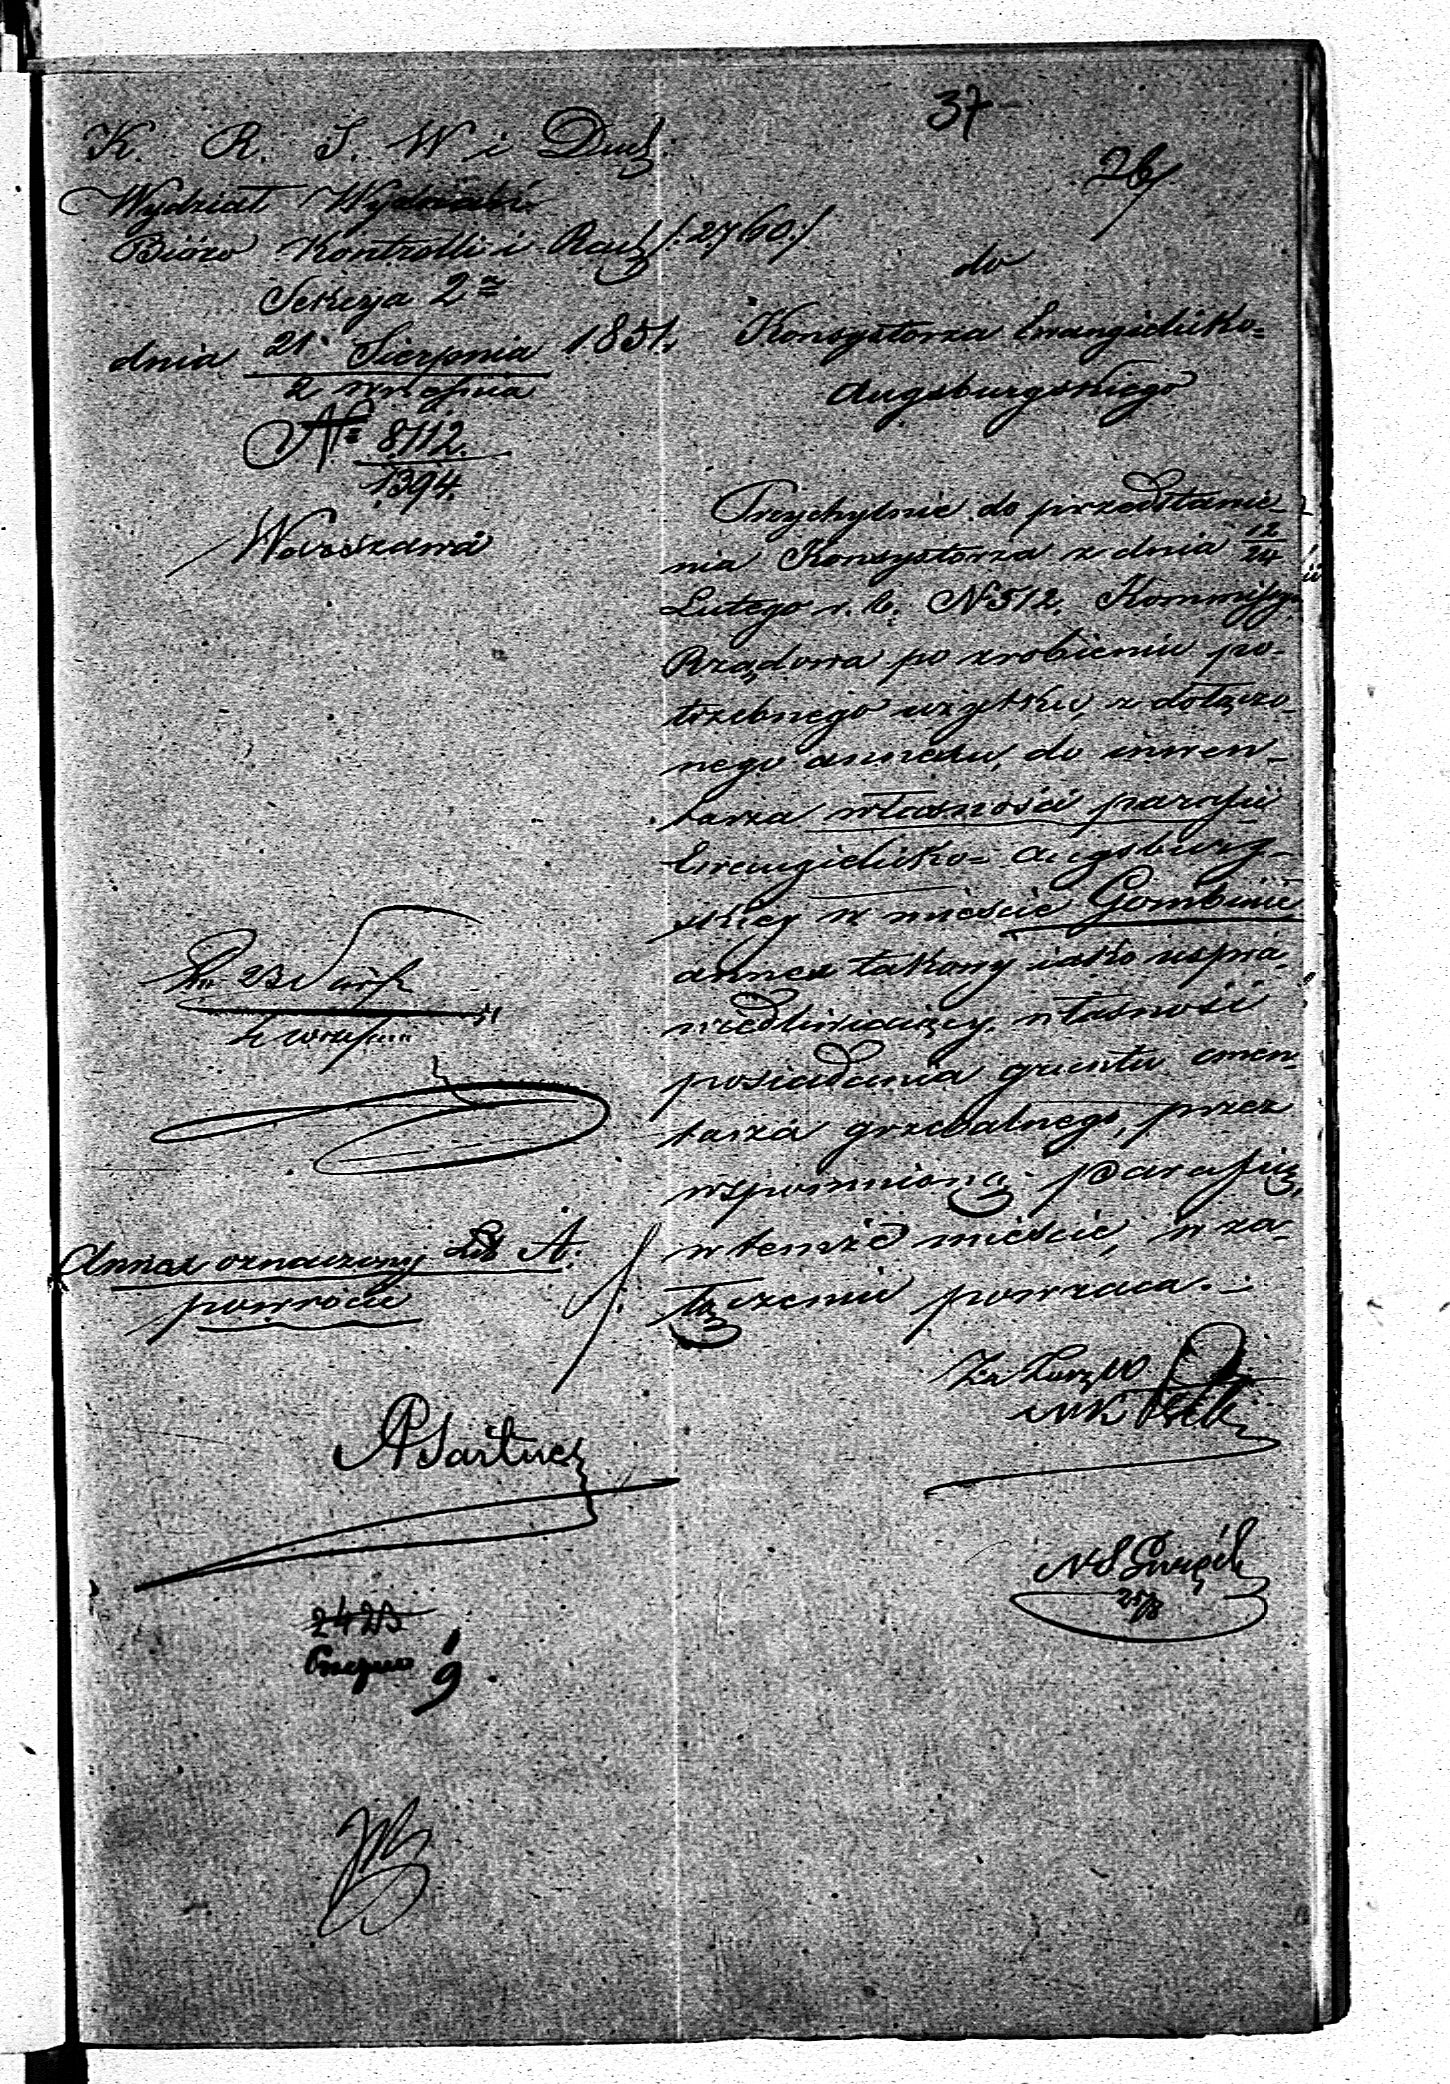 37
26
K. R. S. W i Duch:
Wydział Wyznań
Bióro Kontrolli i Rach /:2760:/
Sekcya 2ª
dnia 21 Sierpnia 1851.
2 września
Nº 8112.
1394.
Warszawa
do
Konsystorza Ewangielicko-
Augsburgskiego
Przychylnie do przedstawie-
nia Konsystorza z dnia 12/24
Lutego r. b. N 512. Kommissya
Rządowa po zrobieniu po-
trzebnego użytku, z dołączo-
nego annexu, do inwen-
tarza własności parafii
Ewangielicko-Augsburg-
skiej w mieście Gombinie
annex takowy iako uspra-
wiedliwiaiący własność
posiadania gruntu cmen-
tarza grzebalnego, przez
wspomnioną parafią,
w temże mieście, w za-
łączeniu powraca.
2 wrześn
Annex oznaczony Lit A.
powrócić
Za
NS
25/8
9